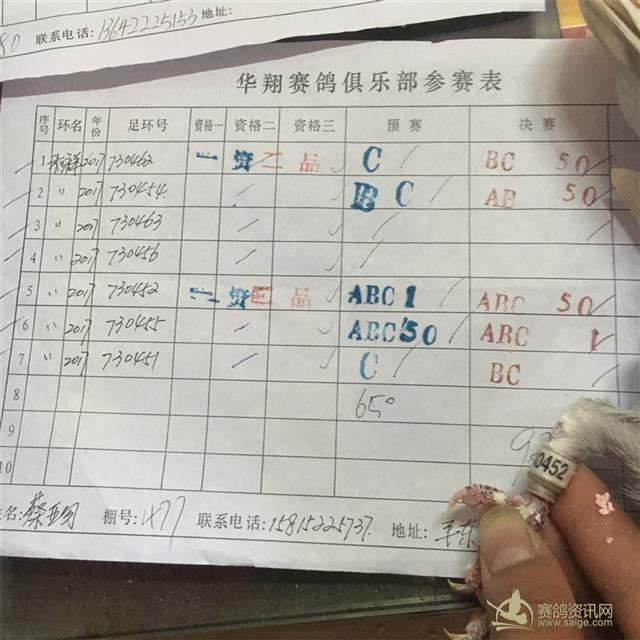 80 联系电话: 13642225153 地址:
华翔赛鸽俱乐部参赛表
序号 环名 年份 足环号 资格一 资格二 资格三 预赛 决赛
1 2017 730462 一 资 二 品 C BC 50
2 〃 2017 730454 B C AB 50
3 〃 2017 730463
4 〃 2017 730456
5 〃 2017 730452 资 品 ABC 1 ABC 50
6 〃 2017 730455 ABC 50 ABC 1
7 〃 2017 730451 C BC
8 650
9
10
名: 棚号: 477 联系电话: 15815225737. 地址:
0452
赛鸽资讯网
www.saige.com